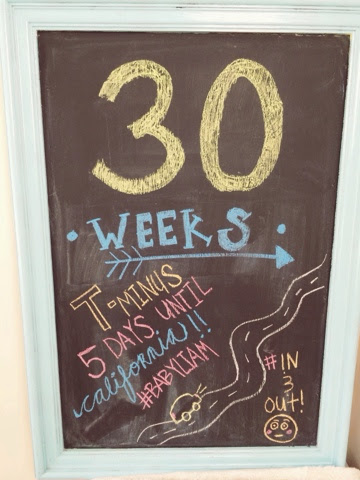 30
• WEEKS •
T-MINUS
5 DAYS UNTIL
california!!
#BABYLIAM
#IN
3
out!